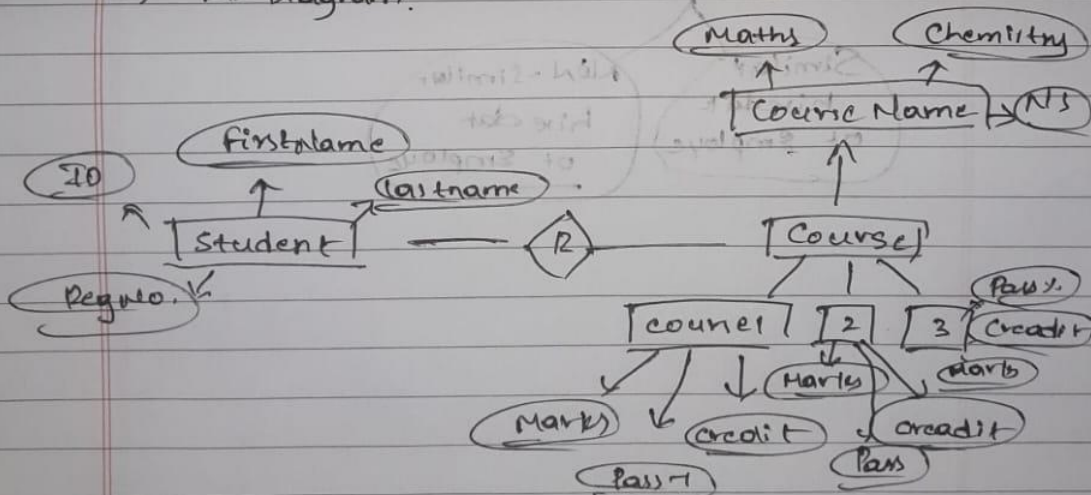 Diagram.
Maths
Chemistry
Course Name
NS
firstname
ID
lastname
Student
R
Course
Reg No.
Pass %
course 1
2
3
Creadit
Marks
Marks
Marks
credit
creadit
Pass